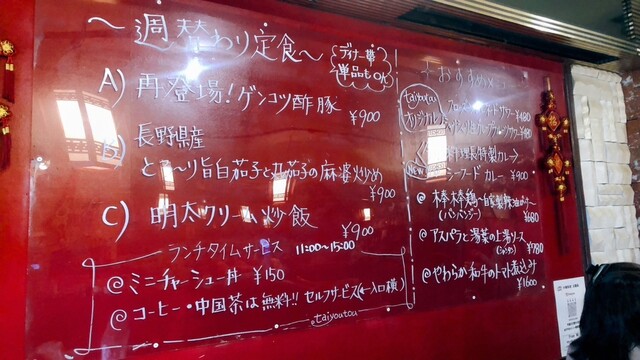 ～週替わり定食～
ディナー帯
単品もOK
A) 再登場！ゲンコツ酢豚
¥900
B) 長野県産
とろ〜り旨白茄子と丸茄子の麻婆炒め
¥900
C) 明太クリーム炒飯
¥900
ランチタイムサービス 11:00〜15:00
@ミニチャーシュー丼 ¥150
@コーヒー・中国茶は無料!! セルフサービス(←入口横)
taiyoutou
おすすめ
taiyoutou
オリジナル
サワー ¥480
¥480
NEW
料理長特製カレー
シーフードカレー ¥900
@ 棒棒鶏〜自家製辣油
(バンバンジー) ¥680
@ アスパラと湯葉の上湯ソース
¥780
@やわらか和牛のトマト煮込み
¥1600